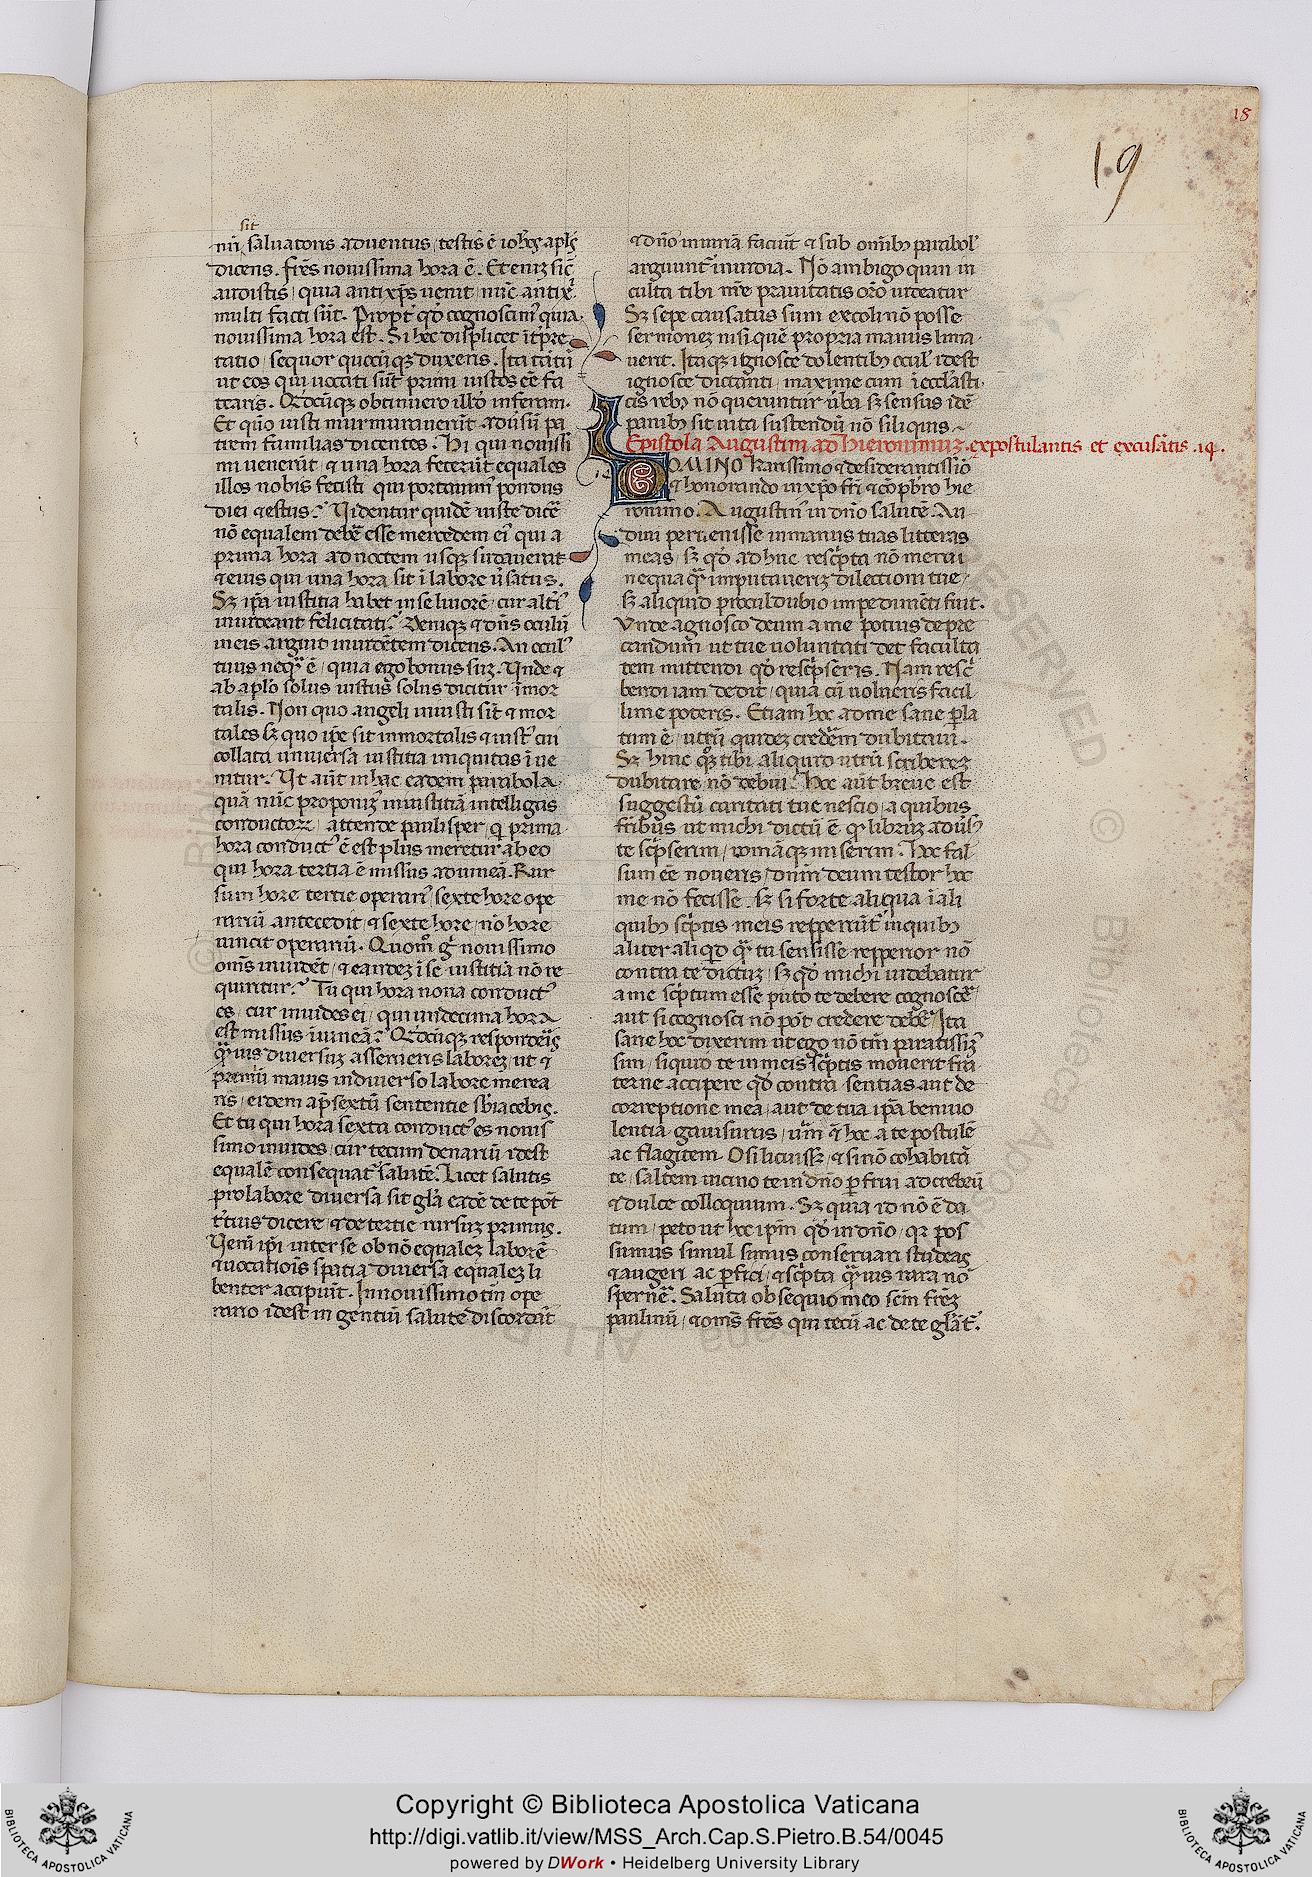 18
19
sit
mi saluatoris aduentus / testis ē iohēs apl's
dicens. frēs nouissima hora ē. Et eniz sic̄
audistis / quia antixp̄s uenit / nūc antix̄
multi facti sūt. Propt' qd' cognoscim' quia
nouissima hora est. Si hoc displicet īt'pre
tatio / sequor quocūqz duxeris. Ita tn̄
ut eos qui uocati sūt primi iustos eē fa
tearis. Qd'cūqz obtinuero illd' inferam.
Et quō iusti murmurauerūt aduersū pa
trem familias dicentes. Hi qui nouissi
mi uenerūt / & una hora fecerūt equales
illos nobis fecisti qui portauim' pondus
diei & estus? Videntur quidē iuste dicē
nō equalem debē esse mercedem ei' qui a
prima hora ad noctem usqz sudauerat
& eius qui una hora sit ī labore v'satus.
Sz ip̄a iustitia habet in se liuorē / cur alt'i'
inuideant felicitati? Deniqz & dn̄s oculū
in eis arguit inuidētem dicens. An ocul'
tuus neq̄ ē / quia ego bonus suz. Vnde &
ab aplō solus iustus solus dicitur īmor
talis. Non quo angeli iniusti sīt & mor
tales sz quo ip̄e sit inmortalis & iust' cui
collata uniuersa iustitia iniquitas īue
nitur. Vt aūt in hac eadem parabola
quā nūc proponiz iniustitiā intelligas
conductorz / attende paulisper / q prima
hora conduct' ē est plus meretur ab eo
qui hora tertia ē missus ad uineā. Rur
sum hore tertie operari' / sexte hore ope
rariū antecedit & sexte hore / nōe hore
uincit operariū. Quom̄ g' nouissimo
om̄s inuidēt / & eandez ī se iustitiā nō re
quirūtur? Tu qui hora nona conduct'
es / cur inuides ei / qui undecima hora
est missus ī uineā? Qd'cūqz responderis
q̄uis diuersuz asserueris laborez / ut &
premiū maius in diuerso labore merea
ris / eidem ap' sextū sententie sbiacebis.
Et tu qui hora sexta conduct' es nouis
simo inuides / cur tecum denariū idest
equalē consequat' salutē. Licet salutis
pro labore diuersa sit gl'a eadē de te pōt
t'tius dicere / & de tertie rursuz primus.
Verū ip̄i inter se ob nō equalez laborē
& uocationis spatia diuersa equalez li
benter accipiūt. In nouissimo tm̄ ope
rario idest in gentiū salute discordāt
& dn̄o iniuriā faciūt & sub omībz parabol'
arguunt' inuidia. Nō ambigo quin in
culta tibi nr̄e prauitatis orō uideatur
Sz sepe causatus sum excoli nō posse
sermonez nisi quē propria manus lima
uerit. Itaqz ignosce dolentibz ocul' idest
ignosce dictanti / maxime cum ī eccl'asti
cis rebz nō querantur ūba sz sensus idē
panibz sit uita sustendū nō siliquis
Epistola Augustini ad Hieronimuz expostulantis et excusātis .14.
DOMINO karissimo & desiderantissīo
& honorando in xp̄o fr̄i & cōp̄b'ro hie
ronimo. Augustin' in dn̄o salutē. Au
diui peruenisse in manus tuas litteras
meas / sz qd' adhuc rescp̄ta nō merui
nequaq̄ imputaueriz dilectioni tue /
sz aliquid proculdubio impedimēti fuit.
Vnde agnosco deum a me potius depre
candum ut tue uoluntati det faculta
tem mittendi qd' rescp̄seris. Nam resc'
bendi iam dedit / quia cū uolueris facil
lime poteris. Etiam hoc ad me sane p'la
tum ē / utrū quidez credēm dubitaui.
Sz hinc q°qz tibi aliquid utrū scriberez
dubitare nō debui. Hoc aūt breue est
suggestū caritati tue nescio a quibus
fr̄ibus ut michi dictū ē q librūz aduūs'
te scp̄serim / romāqz miserim. Hoc fal
sum eē noueris / dnm̄ deum testor hoc
me nō fecisse. sz si forte aliqua ī ali
quibz scp̄tis meis repperiūt' in quibz
aliter aliqd' q̄ tu sensisse repperior nō
contra te dictuz / sz qd' michi uidebatur
a me scp̄tum esse puto te debere cognoscē
aut si cognosci nō pōt credere debē. Ita
sane hoc dixerim ut ego nō tm̄ paratissiz'
sim / siquid te in meis scp̄tis mouerit fra
terne accipere qd' contra sentias aut de
correptione mea / aut de tua ip̄a beniuo
lentia gauisurus / uerum & hoc a te postulē
ac flagitem O si licuissz / & si nō cohabitā
te / saltem uicino te in dn̄o p frui ad crebrū
& dulce colloquium. Sz quia id nō ē da
tum / peto ut hoc ip̄m qd' in dn̄o / q̄ pos
sumus simul simus conseruari studeas
& augeri ac p'fici / & scp̄ta q̄uis rara nō
spernē. Saluta obsequio meo scm̄ frēz
paulinū / & om̄s frēs qui tecū ac de te gl'āt'.
Copyright © Biblioteca Apostolica Vaticana
http://digi.vatlib.it/view/MSS_Arch.Cap.S.Pietro.B.54/0045
powered by DWork • Heidelberg University Library
BIBLIOTECA APOSTOLICA VATICANA
BIBLIOTECA APOSTOLICA VATICANA